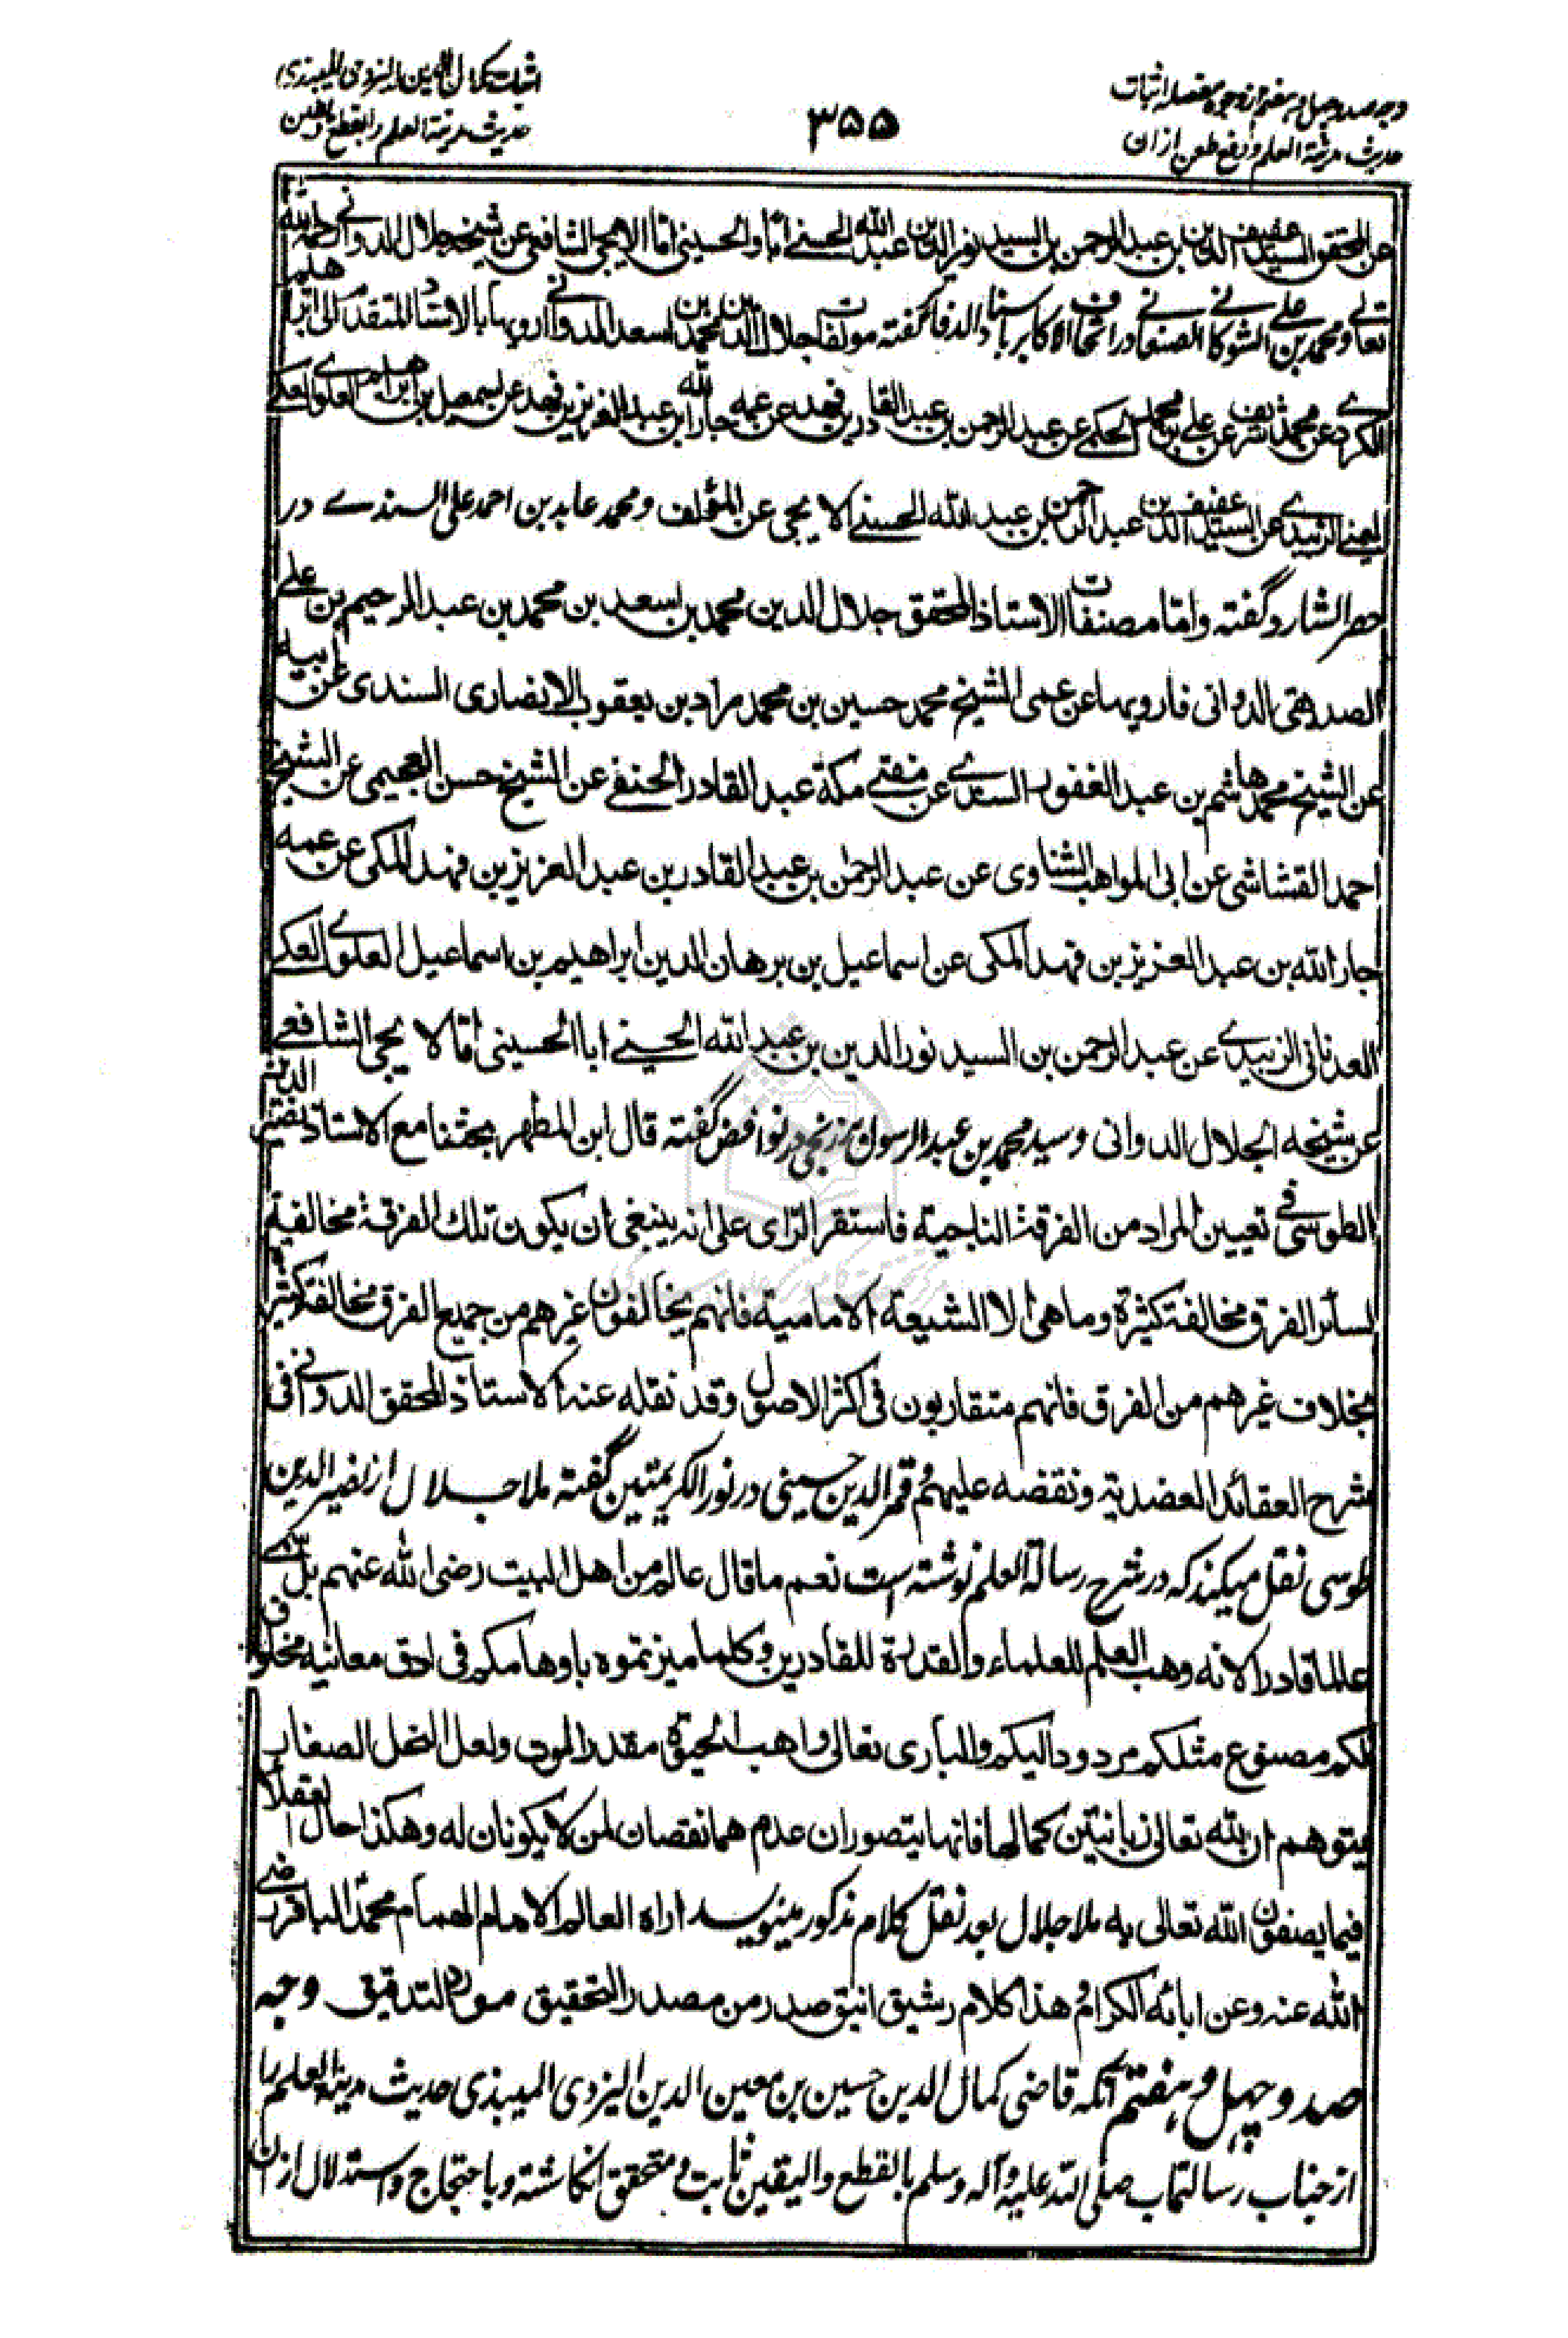 وجه صد و چهل و هفتم از وجوه مفصله اثبات
حدیث مدینة العلم و دفع طعن از ان
۳۵۵
اثبات کمال الدین الیزدی المیبذی
حدیث مدینة العلم را بقطع و یقین
عن المحقق السید عفیف الدین بن عبد الرحمن بن السید نور الدین عبد الله الحسنی ابًا والحسینی امّا الایجی الشافعی عن شیخه جلال الدوانی رحمه الله
تعالی و محمد بن علی الشوکانی الصنعانی در اتحاف الاکابر باسناد الدفاتر گفته مولفات جلال الدین محمد بن اسعد الدوانی ارویها بالاسناد المتقدم الی ابراهیم
الکردی عن محمد شریف عن علی بن محمد الحکمی عن عبد الرحمن بن عبد القادر بن فهد عن عمه جار الله بن عبد العزیز بن فهد عن اسمعیل بن ابراهیم العلوی العکی
الیمنی الزبیدی عن السید عفیف الدین عبد الرحمن بن عبد الله الحسنی الایجی عن المؤلف و محمد عابد بن احمد علی السندی در
حصر الشارد گفته واما مصنفات الاستاذ المحقق جلال الدین محمد بن اسعد بن محمد بن عبد الرحیم بن علی
الصدیقی الدوانی فارویها عن عمی الشیخ محمد حسین بن محمد مراد بن یعقوب الانصاری السندی عن ابیه
عن الشیخ محمد هاشم بن عبد الغفور السندی عن مفتی مکة عبد القادر الحنفی عن الشیخ حسن العجیمی عن الشیخ
احمد القشاشی عن ابی المواهب الشناوی عن عبد الرحمن بن عبد القادر بن عبد العزیز بن فهد المکی عن عمه
جار الله بن عبد العزیز بن فهد المکی عن اسماعیل بن برهان الدین ابراهیم بن اسماعیل العلوی العکی
العدنانی الزبیدی عن عبد الرحمن بن السید نور الدین بن عبد الله الحسنی ابا الحسینی امّا الایجی الشافعی
عن شیخه الجلال الدوانی و سید محمد بن عبد الرسول برزنجی در نوافض گفته قال ابن المطهر بحثنا مع الاستاذ نصیر الدین
الطوسی فی تعیین المراد من الفرقة الناجیة فاستقر الرای علی انه ینبغی ان یکون تلک الفرقة مخالفة
لسائر الفرق مخالفة کثیرة وما هی الا الشیعة الامامیة فانهم یخالفون غیرهم من جمیع الفرق مخالفة کثیرة
بخلاف غیرهم من الفرق فانهم متقاربون فی اکثر الاصول وقد نقله عنه الاستاذ المحقق الدوانی فی
شرح العقائد العضدیة ونقضه علیهم و قمر الدین حسینی در نور الکریمتین گفته ملا جلال از نصیر الدین
طوسی نقل میکند که در شرح رسالة العلم نوشته است نعم ما قال عالم من اهل البیت رضی الله عنهم بل سمی
عالما قادرا الا انه وهب العلم للعلماء والقدرة للقادرین وکلما میزتموه باوهامکم فی ادق معانیه مخلوق
لکم مصنوع مثلکم مردود الیکم والباری تعالی واهب الحیوة مقدر الموت ولعل النمل الصغار
یتوهم ان لله تعالی زبانیتین کمالها فانها یتصور ان عدم هما نقصان لمن لا یکونان له وهکذا حال العقلاء
فیما یصفون الله تعالی به ملا جلال بعد نقل کلام مذکور مینویسد اراه العالم الامام الهمام محمد الباقر رضی
الله عنه وعن ابائه الکرام و هذا کلام رشیق انیق صدر من مصدر التحقیق مورد التدقیق وجه
صد و چهل و هفتم آنکه قاضی کمال الدین حسین بن معین الدین الیزدی المیبذی حدیث مدینة العلم را
از جناب رسالتمآب صلی الله علیه و آله و سلم بالقطع والیقین ثابت و متحقق انکاشته و باحتجاج و استدلال از ان